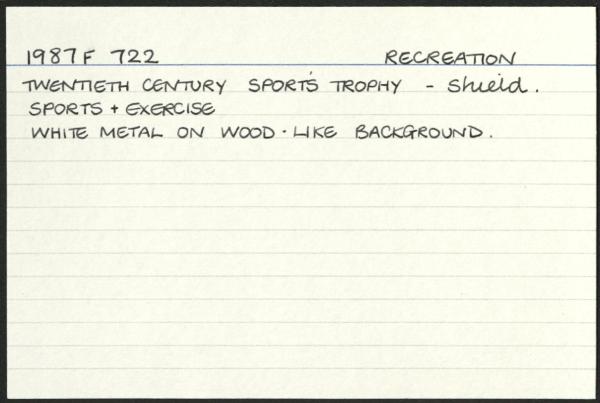 1987F 722 RECREATION
TWENTIETH CENTURY SPORTS TROPHY - Shield.
SPORTS + EXERCISE
WHITE METAL ON WOOD-LIKE BACKGROUND.